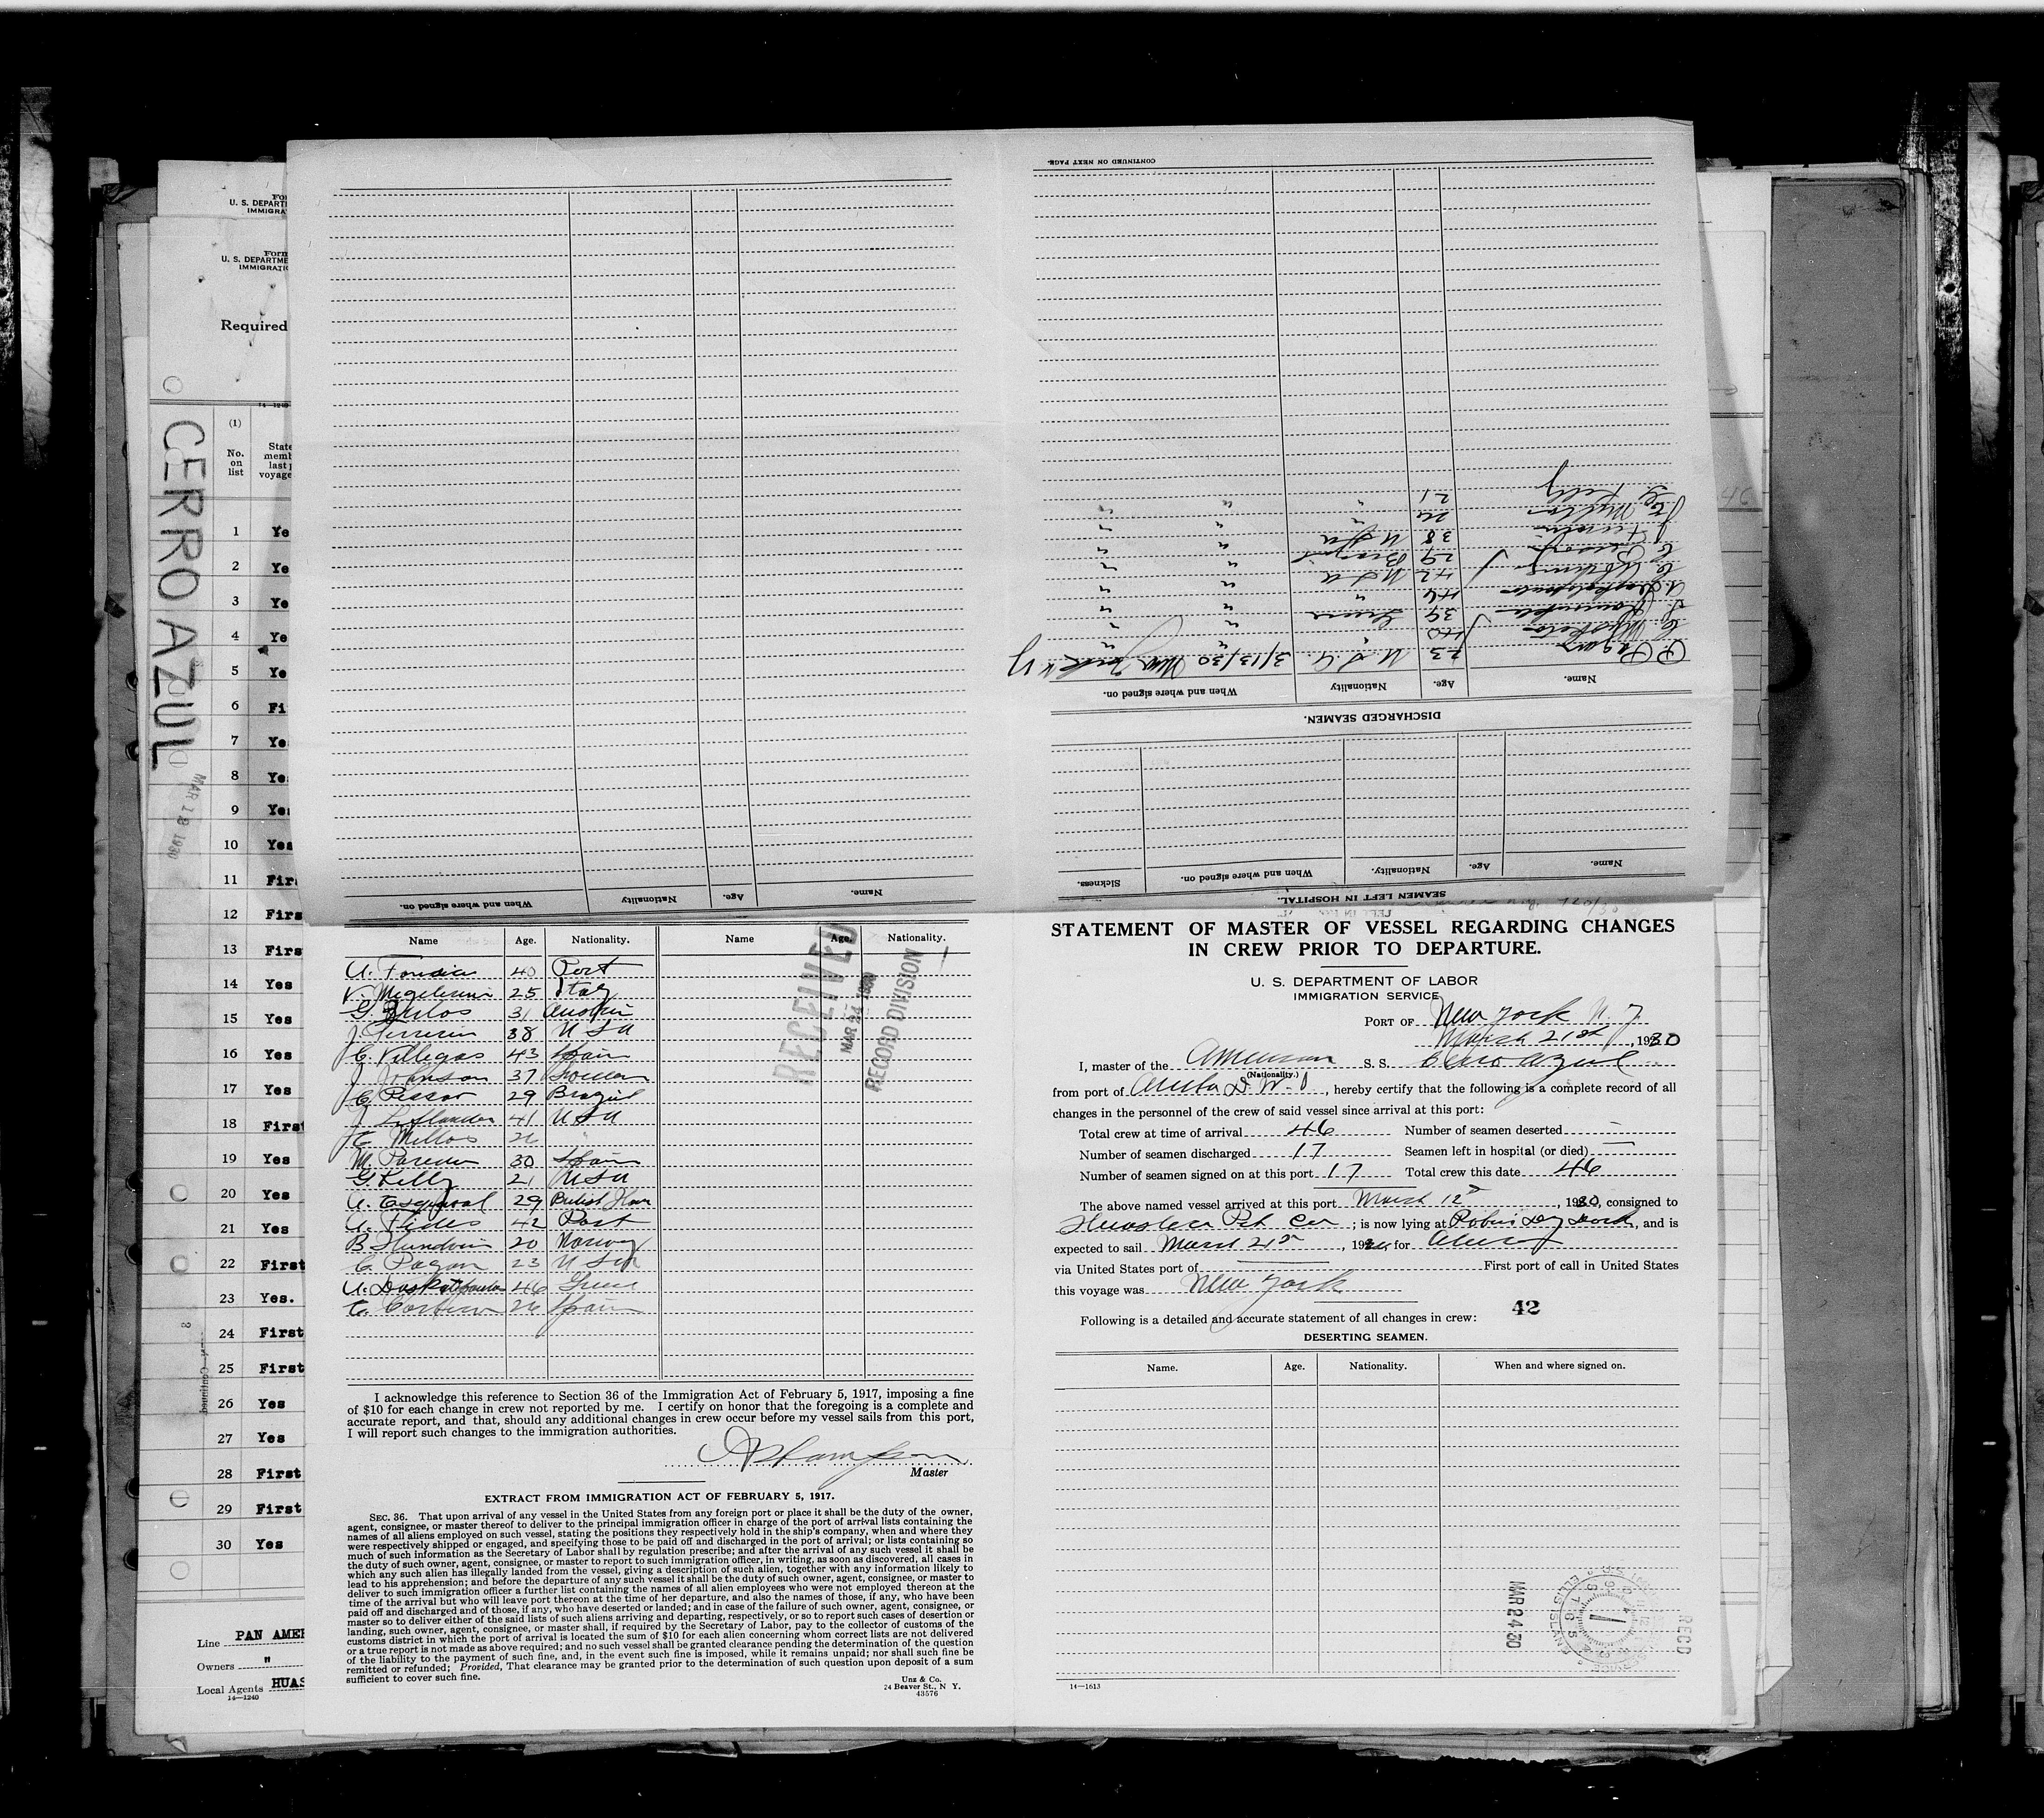 CERRO AZUL
MAR 28 1930
Form
U. S. DEPARTME
IMMIGRATIO
Required
14—1240
(1)
No.
on
list
State
memb
last
voyage
1 Ye
2 Ye
3 Ye
4 Ye
5 Ye
6 Fi
7 Ye
8 Ye
9 Ye
10 Yes
11 Fir
12 Firs
13 Firs
14 Yes
15 Yes
16 Yes
17 Yes
18 First
19 Yes
20 Yes
21 Yes
22 First
23 Yes.
24 First
25 First
26 Yes
27 Yes
28 First
29 First
30 Yes
Line PAN AMER
Owners "
Local Agents HUAS
14—1240
CONTINUED ON NEXT PAGE.
G. Kelly 21 " " "
26 " " "
38 USA " "
29 Brazil " "
42 USA " "
46 " " "
39 Greece " "
40 " " "
23 U.S.A. 3/13/30 New York N Y
Name. Age. Nationality When and where signed on.
DISCHARGED SEAMEN.
Name. Age. Nationality. When and where signed on. Sickness.
SEAMEN LEFT IN HOSPITAL.
Name. Age. Nationality When and where signed on.
Name Age. Nationality. Name Age. Nationality.
A. 40 Port
V. 25 Italy
G. 31 Austria
J. 38 USA
C. Villegas 43 Spain
J. Johnson 37
C. Pessoa 29 Brazil
J. 41 USA
C. Millos 26 "
M. Paredes 30 Spain
G Kelly 21 USA
A. Esquivel 29 British Hon
A. 42 Port
B. 20 Norway
C. Pagan 23 USA
A. 46 Greece
C. 26 Spain
RECEIVED
MAR 24 1930
RECORD DIVISION
I acknowledge this reference to Section 36 of the Immigration Act of February 5, 1917, imposing a fine
of $10 for each change in crew not reported by me. I certify on honor that the foregoing is a complete and
accurate report, and that, should any additional changes in crew occur before my vessel sails from this port,
I will report such changes to the immigration authorities.
Master
EXTRACT FROM IMMIGRATION ACT OF FEBRUARY 5, 1917.
SEC. 36. That upon arrival of any vessel in the United States from any foreign port or place it shall be the duty of the owner,
agent, consignee, or master thereof to deliver to the principal immigration officer in charge of the port of arrival lists containing the
names of all aliens employed on such vessel, stating the positions they respectively hold in the ship's company, when and where they
were respectively shipped or engaged, and specifying those to be paid off and discharged in the port of arrival; or lists containing so
much of such information as the Secretary of Labor shall by regulation prescribe; and after the arrival of any such vessel it shall be
the duty of such owner, agent, consignee, or master to report to such immigration officer, in writing, as soon as discovered, all cases in
which any such alien has illegally landed from the vessel, giving a description of such alien, together with any information likely to
lead to his apprehension; and before the departure of any such vessel it shall be the duty of such owner, agent, consignee, or master to
deliver to such immigration officer a further list containing the names of all alien employees who were not employed thereon at the
time of the arrival but who will leave port thereon at the time of her departure, and also the names of those, if any, who have been
paid off and discharged and of those, if any, who have deserted or landed; and in case of the failure of such owner, agent, consignee, or
master so to deliver either of the said lists of such aliens arriving and departing, respectively, or so to report such cases of desertion or
landing, such owner, agent, consignee, or master shall, if required by the Secretary of Labor, pay to the collector of customs of the
customs district in which the port of arrival is located the sum of $10 for each alien concerning whom correct lists are not delivered
or a true report is not made as above required; and no such vessel shall be granted clearance pending the determination of the question
of the liability to the payment of such fine, and, in the event such fine is imposed, while it remains unpaid; nor shall such fine be
remitted or refunded; Provided, That clearance may be granted prior to the determination of such question upon deposit of a sum
sufficient to cover such fine.
Unz & Co.
24 Beaver St., N Y.
43576
STATEMENT OF MASTER OF VESSEL REGARDING CHANGES
IN CREW PRIOR TO DEPARTURE.
U. S. DEPARTMENT OF LABOR
IMMIGRATION SERVICE
PORT OF New York N. Y.
March 21st, 1930
I, master of the American S. S. Cerro Azul
(Nationality.)
from port of Aruba D. W. I, hereby certify that the following is a complete record of all
changes in the personnel of the crew of said vessel since arrival at this port:
Total crew at time of arrival 46 Number of seamen deserted —
Number of seamen discharged 17 Seamen left in hospital (or died) —
Number of seamen signed on at this port 17 Total crew this date 46
The above named vessel arrived at this port March 12, 1930, consigned to
Huasteca Pet Co; is now lying at Robins Dry Dock, and is
expected to sail March 21st, 1930 for
via United States port of — First port of call in United States
this voyage was New York
Following is a detailed and accurate statement of all changes in crew: 42
DESERTING SEAMEN.
Name. Age. Nationality. When and where signed on.
MAR 24 30
RECD
14—1613
46